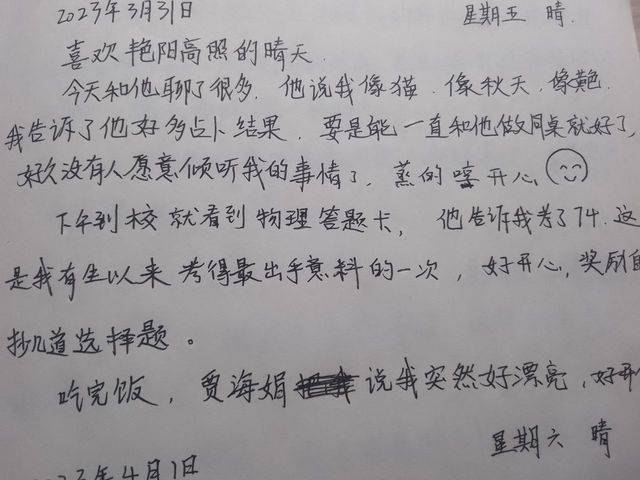 2023年3月31日 星期五 晴.
喜欢艳阳高照的晴天.
今天和他聊了很多. 他说我像猫. 像秋天. 像黄色.
我告诉了他好多占卜结果. 要是能一直和他做同桌就好了,
好久没有人愿意倾听我的事情了. 蒸的嘎开心
下午到校就看到物理答题卡, 他告诉我考了74. 这
是我有生以来考得最出乎意料的一次, 好开心, 奖励自
抄几道选择题。
吃完饭, 贾海娟 说我突然好漂亮, 好开
2023年4月1日 星期六 晴